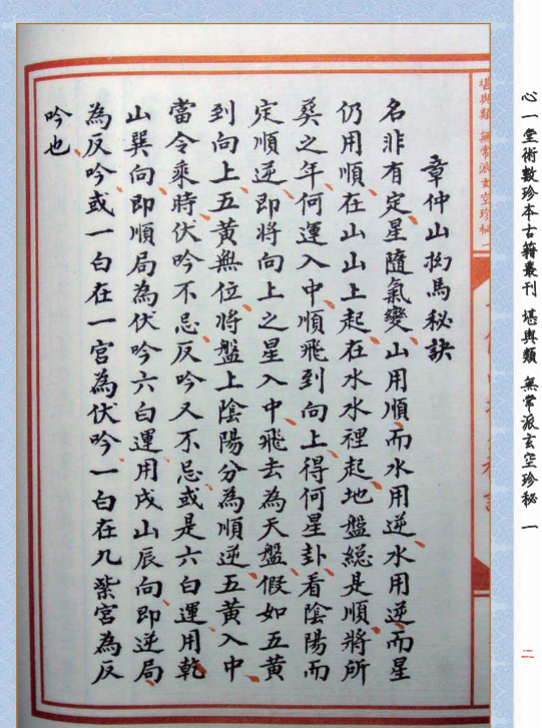 心一堂術數珍本古籍叢刊 堪輿類 無常派玄空珍秘 一
二
堪輿類 無常派玄空珍秘 一
章仲山挨馬秘訣
名非有定星隨氣變山用順而水用逆水用逆而星
仍用順在山山上起在水水裡起地盤總是順將所
葵之年何運入中順飛到向上得何星卦看陰陽而
定順逆即將向上之星入中飛去為天盤假如五黃
到向上五黃無位將盤上陰陽分為順逆五黃入中
當令乘時伏吟不忌反吟又不忌或是六白運用乾
山巽向即順局為伏吟六白運用戌山辰向即逆局
為反吟或一白在一宮為伏吟一白在九紫宮為反
吟也